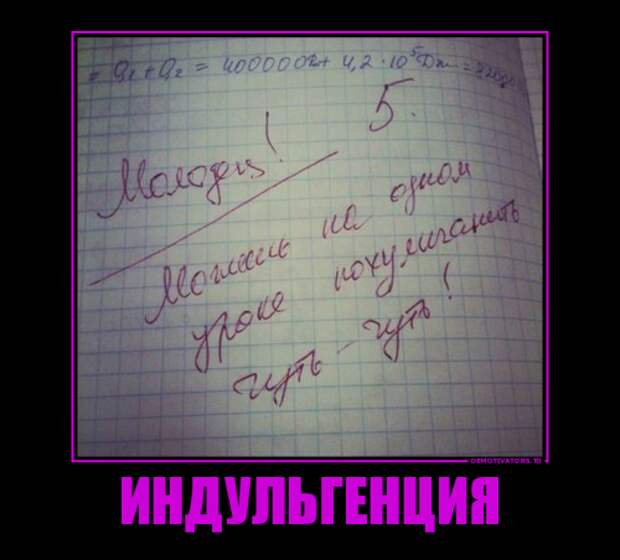 = Q₁ + Q₂ = 400000Дж + 4,2 · 10⁵Дж =
5.
Молодец!
Можешь на одном
уроке похулиганить
чуть-чуть!
DEMOTIVATORS.TO
ИНДУЛЬГЕНЦИЯ